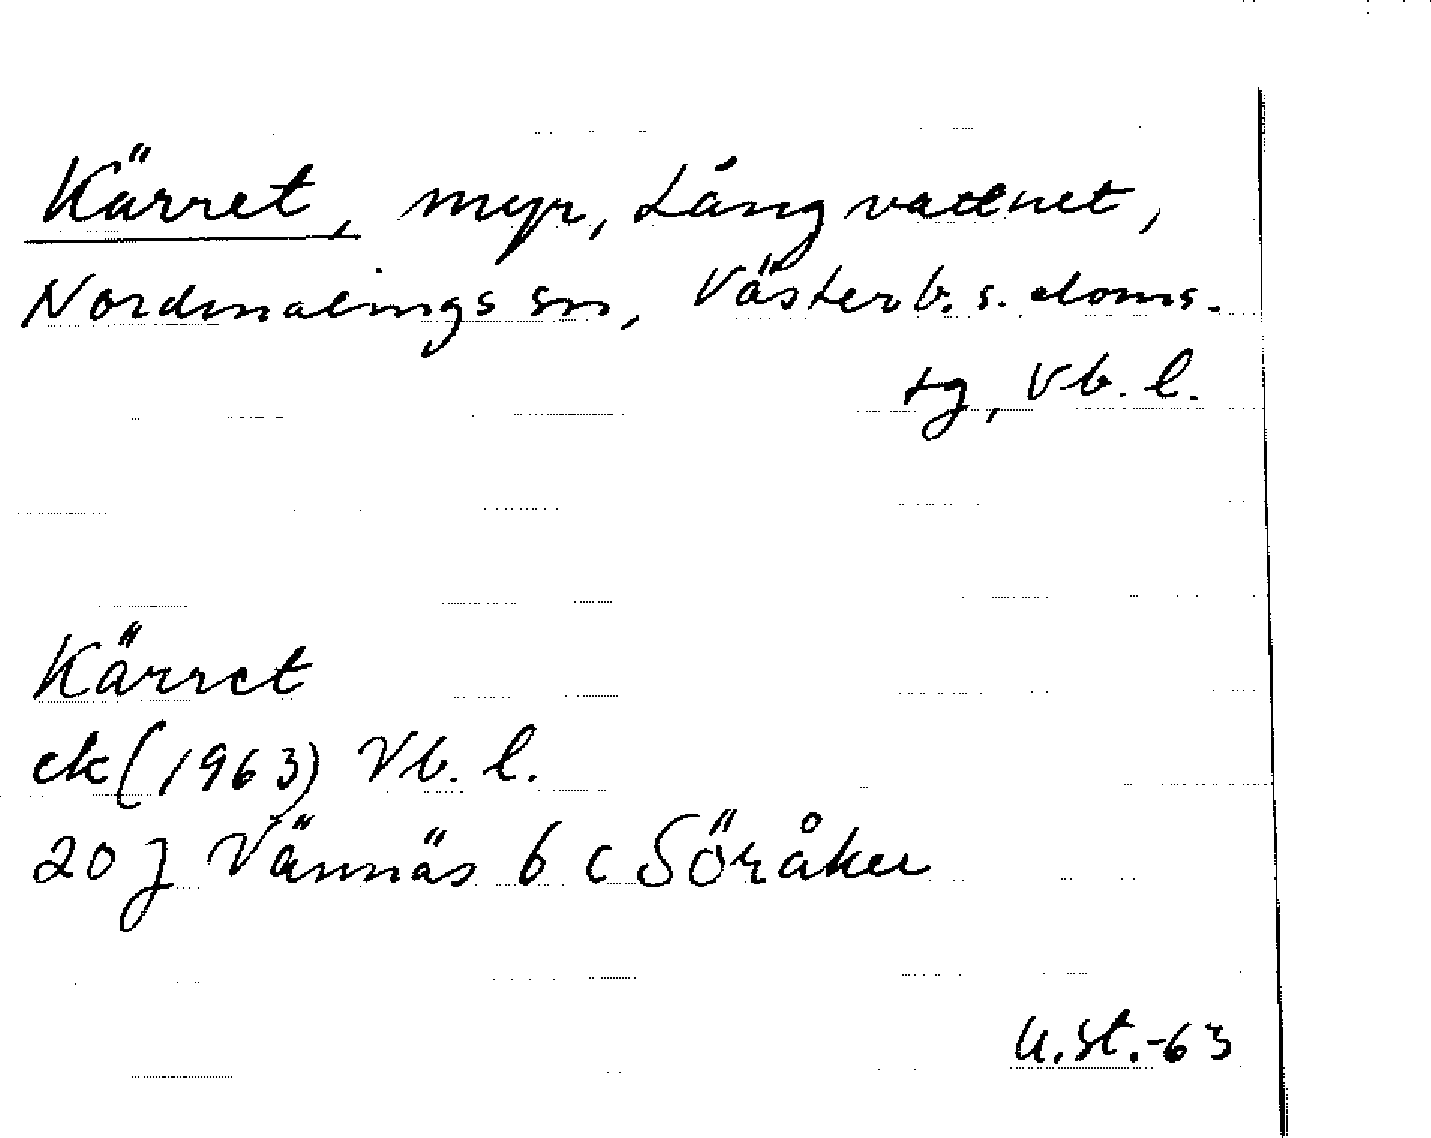 Kärret, myr, Långvattnet,
Nordmalings sn, Västerb. s. doms.
tg, Vb. l.
Kärret
ek (1963) Vb. l.
20 J Vännäs 6 c Söråker
U.St.-63